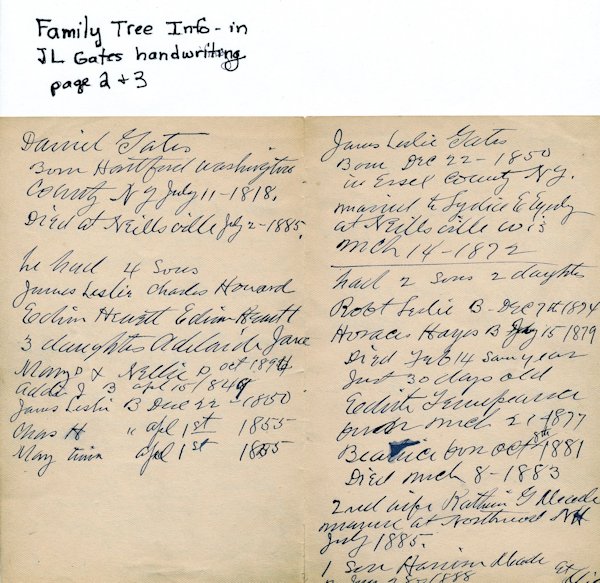 Family Tree Info - in
JL Gates handwriting
page 2 + 3
Daniel Gates
Born Hartford Washington
County NY July 11 - 1818.
Died at Neillsville July 2 - 1885.
he had 4 Sons
James Leslie Charles Howard
Edwin Hewett Edwin Hewett
3 daughters Adelaide Jane
May & Nellie D Oct 1894
J B apl 15/
James Leslie B Dec 22 - 1850
Chas H " apl 1st 1855
May twin apl 1st 1855
James Leslie Gates
Born Dec 22 - 1850
in Essex County N.Y.
married to Lydia E
at Neillsville Wis
Mch 14 - 1872
had 2 Sons 2 daughters
Robt Leslie B - Dec 7th 1874
Horace Hayes B 15 1879
Died Feb 14 Same year
Just 30 days old
Edith
born mch 21 - 1877
Beatrice born oct 8th 1881
Died mch 8 - 1883
2nd wife G Meade
at Northwood NH
July 1885.
1 Son Meade